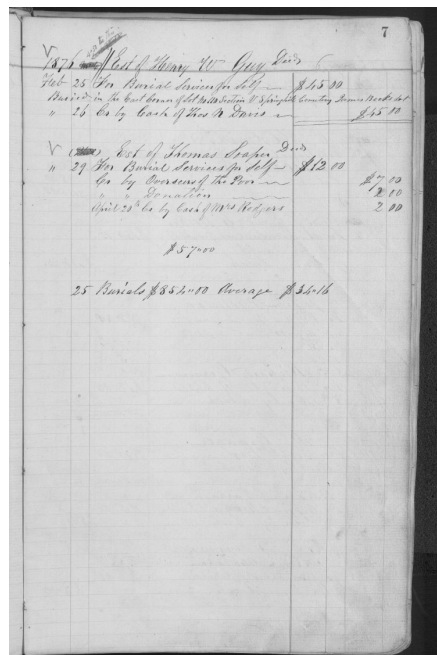 7
1876 Est of Henry W Guy Decd
Feb 25 For Burial Services for Self $45 00
Buried in the East Corner of Lot Section Cemetery
" 26 Cr by Cash of Thos N Davis $45 00
Est of Thomas Soaper Decd
" 29 For Burial Services for Self $12 00
Cr by Overseers of the Poor $7 00
" " Donation 00
April 20th Cr by Cash of Mrs Rodgers 2 00
$57"00
25 Burials $854"00 Average $34"16